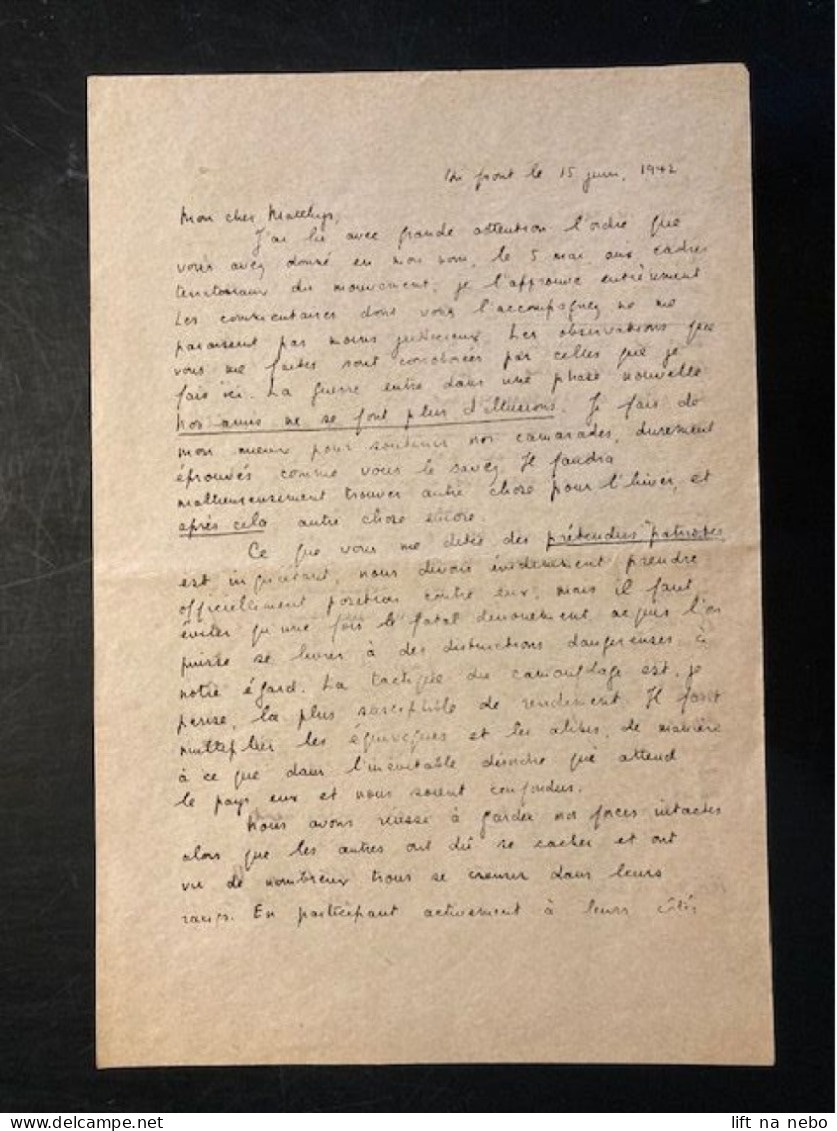 Du front le 15 juin, 1942
Mon cher Matthys,
J'ai lu avec grande attention l'ordre que
vous avez donné en mon nom, le 5 mai aux cadres
territoriaux du mouvement, je l'approuve entièrement
Les commentaires dont vous l'accompagnez ne me
paraissent pas moins judicieux. Les observations que
vous me faites sont corroborées par celles que je
fais ici. La guerre entre dans une phase nouvelle
Nos amis ne se font plus d'illusions. Je fais de
mon mieux pour soutenir nos camarades, durement
éprouvés comme vous le savez. Il faudra
malheureusement trouver autre chose pour l'hiver, et
après cela autre chose encore.
Ce que vous me dites des prétendus "patriotes"
est inquiétant, nous devons évidemment prendre
officiellement position contre eux, mais il faut
éviter qu'une fois le fatal denouement acquis l'on
puisse se livrer à des distinctions dangereuses à
notre égard. La tactique du camouflage est, je
pense, la plus susceptible de rendement. Il faut
multiplier les équivoques et les alibis, de manière
à ce que dans l'inévitable désordre qui attend
le pays eux et nous soient confondus.
Nous avons réussi à garder nos forces intactes
alors que les autres ont dû se cacher et ont
vu de nombreux trous se creuser dans leurs
rangs. En participant activement à leurs côtés
lift na nebo